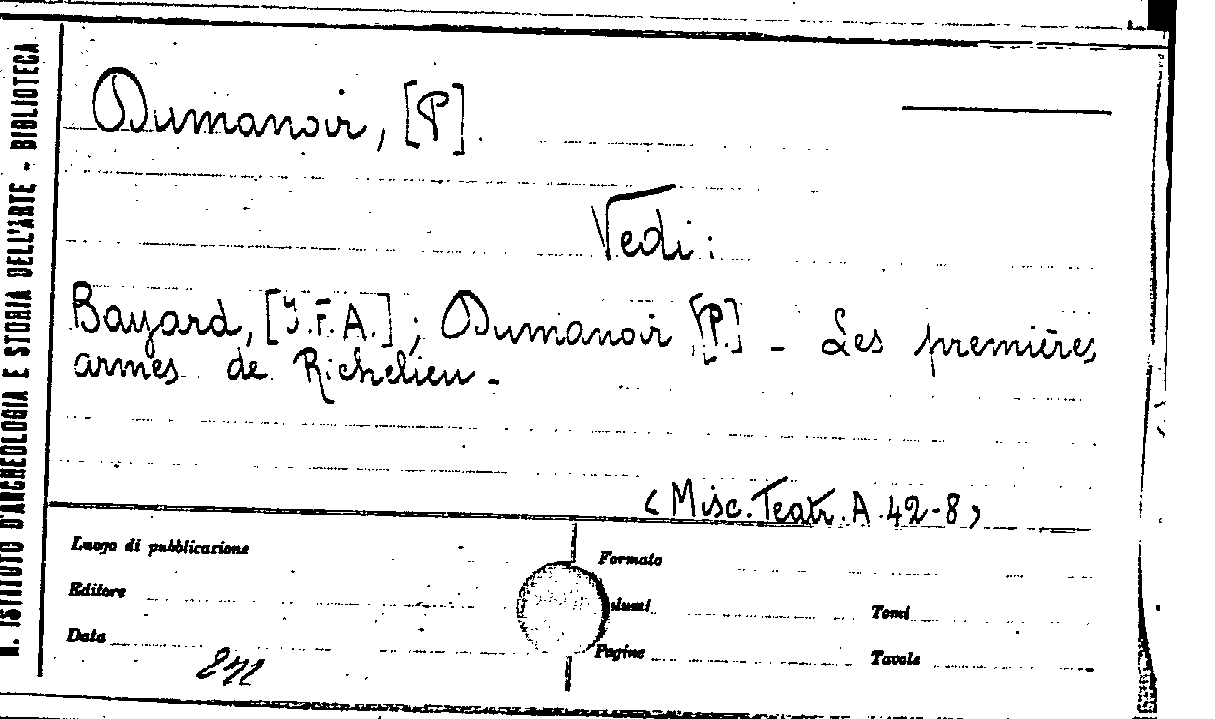 R. ISTITUTO D'ARCHEOLOGIA E STORIA DELL'ARTE - BIBLIOTECA
Dumanoir, [P].
Vedi:
Bayard, [J.F.A.]; Dumanoir [P.] - Les premières
armes de Richelieu -
(Misc. Teatr. A. 42-8)
Luogo di pubblicazione
Formato
Editore
lumi
Tomi
Data
Pagine
Tavole